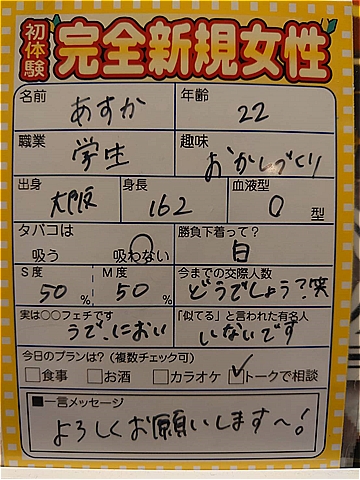 初体験 完全新規女性
名前 あすか 年齢 22
職業 学生 趣味 おかしづくり
出身 大阪 身長 162 血液型 O 型
タバコは 吸う 吸わない 勝負下着って? 白
S度 50% M度 50% 今までの交際人数 どうでしょう?笑
実は○○フェチです うで、におい 「似てる」と言われた有名人 いないです
今日のプランは?(複数チェック可)
□食事 □お酒 □カラオケ ☑トークで相談
■一言メッセージ
よろしくお願いします~!